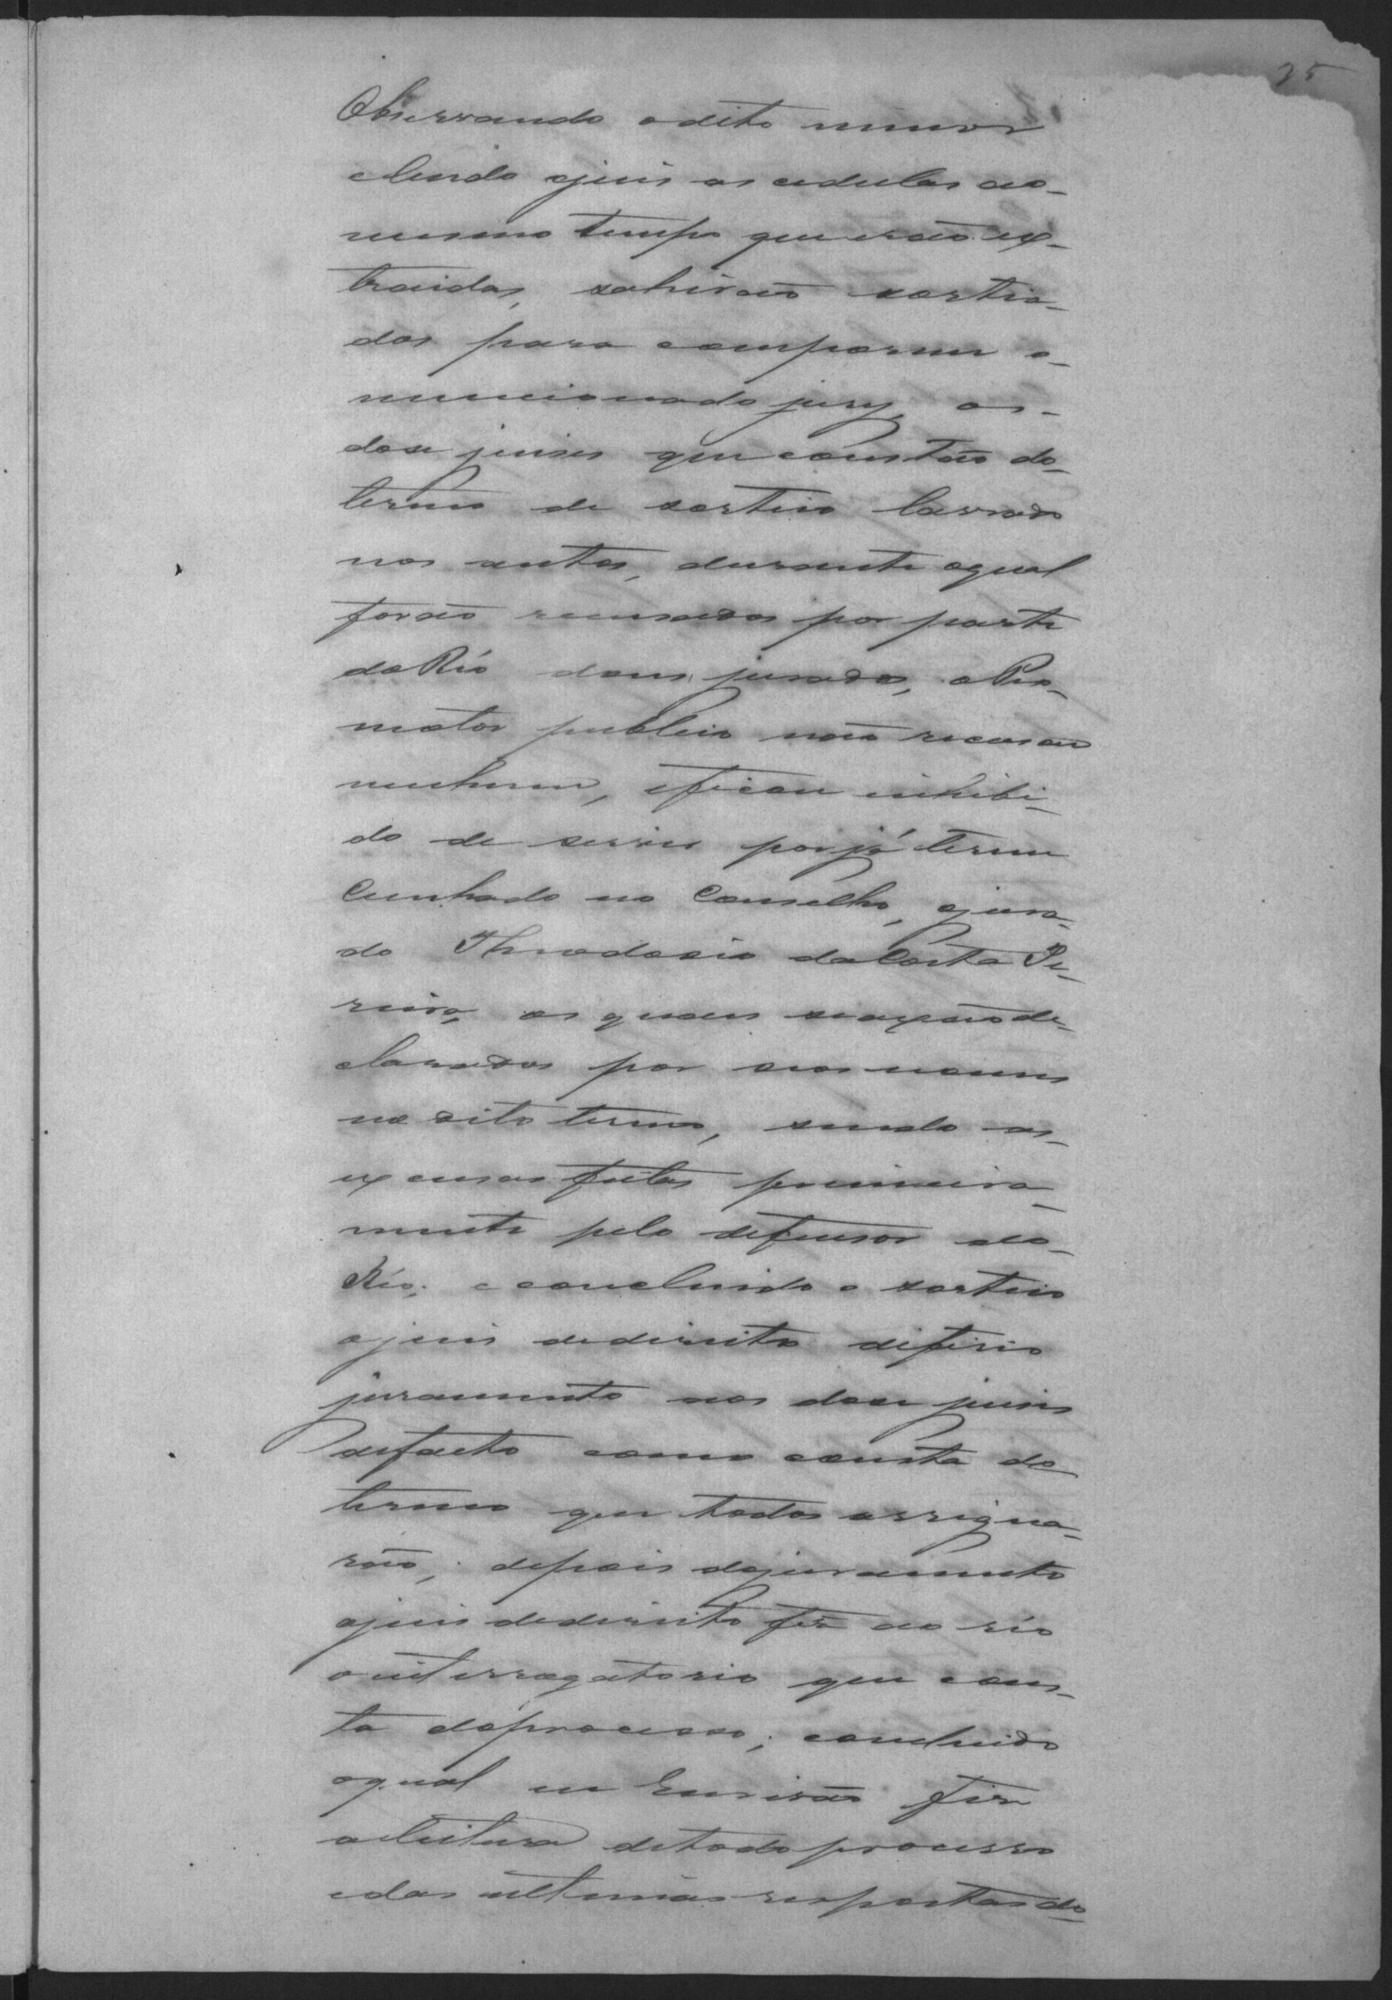 25
Observando o dito menor
e lendo o juis as cedulas ao
mesmo tempo que erão ex-
traidas, sahirão sortia-
dos para comporem o
mencionado jury, os
dose juises que constão do
termo de sorteio lavrado
nos autos, durante o qual
forão recusados por parte
do Réo dous jurados, o Pro-
motor publico não recusou
nenhum, e ficou inhibi-
do de servir por já ter um
Cunhado no Conselho, o jura-
do Theodosio da Costa Pe-
reira, os quaes se achão de-
clarados por seos nomes
no dito termo, sendo as
excusas feitas primeira-
mente pelo defensor do
Réo; e concluido o sorteio
o juis de direito diferio
juramento aos dose juises
de facto como consta do
termo que todos assigna-
rão; depois do juramento
o juis de direito fez ao réo
o interrogatorio que cons-
ta do processo; concluido
o qual eu Escrivão fiz
a leitura de todo processo
e das ultimas respostas do